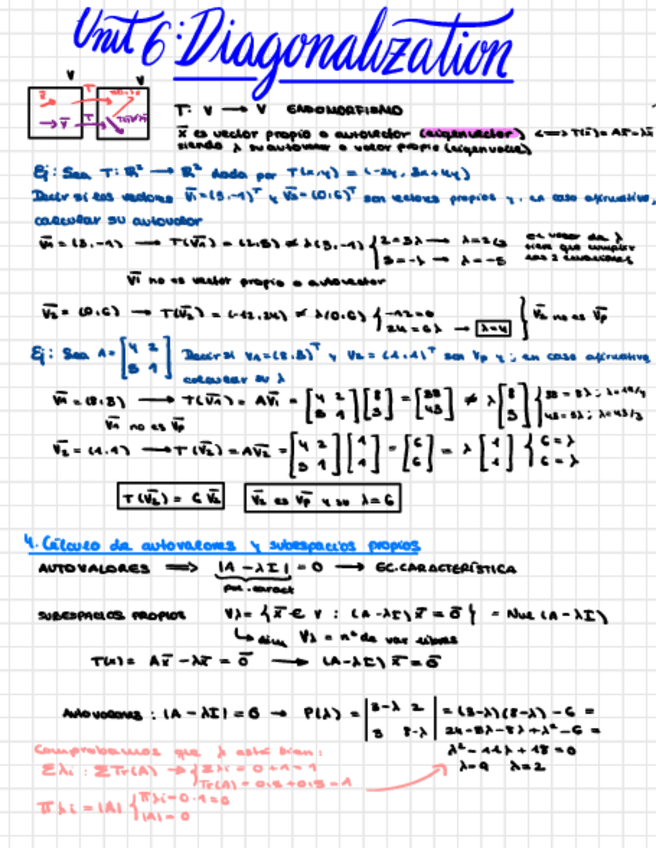 Unit 6: Diagonalization
V T V
T: V → V ENDOMORFISMO
x̄ es vector propio o autovector (eigenvector) ⟺ T(x̄) = Ax̄ = λx̄
siendo λ su autovalor o valor propio (eigenvalue)
Ej: Sea T: ℝ² → ℝ² dada por T(x,y) = (-2y, 3x+4y)
Decir si los vectores v̄₁=(3,-1)ᵀ y v̄₂=(0,6)ᵀ son vectores propios y, en caso afirmativo,
calcular su autovalor
v̄₁ = (3,-1) → T(v̄₁) = (2,5) ≠ λ(3,-1) { 2=3λ → λ=2/3
5=-λ → λ=-5
el valor de λ
tiene que cumplir
las 2 ecuaciones
v̄₁ no es vector propio o autovector
v̄₂ = (0,6) → T(v̄₂) = (-12,24) ≠ λ(0,6) { -12=0
24=6λ → λ=4 } v̄₂ no es v̄p
Ej: Sea A = [4 2; 5 1] Decir si v₁=(8,3)ᵀ y v₂=(1,1)ᵀ son vp y, en caso afirmativo
calcular su λ
v̄₁ = (8,3) → T(v̄₁) = Av̄₁ = [4 2; 5 1] [8; 3] = [38; 43] ≠ λ [8; 3] { 38=8λ; λ=19/4
43=3λ; λ=43/3
v̄₁ no es v̄p
v̄₂ = (1,1) → T(v̄₂) = Av̄₂ = [4 2; 5 1] [1; 1] = [6; 6] = λ [1; 1] { 6=λ
6=λ
T(v̄₂) = 6v̄₂ v̄₂ es v̄p y su λ=6
4. Cálculo de autovalores y subespacios propios
AUTOVALORES ⟹ |A - λI| = 0 → EC. CARACTERÍSTICA
pol. caract
SUBESPACIOS PROPIOS Vλ = { x̄ ∈ V : (A-λI) x̄ = ō } = Nuc (A-λI)
↳ dim Vλ = nº de var libres
T(x) = Ax̄ - λx̄ = ō → (A-λI) x̄ = ō
Autovalores: |A - λI| = 0 → P(λ) = |3-λ 2; 3 8-λ| = (3-λ)(8-λ) - 6 =
24-3λ-8λ+λ²-6 =
λ²-11λ+18=0
λ=9 λ=2
Comprobamos que λ está bien:
Σλi : ΣTr(A) → { Σλi = 0+1=1
Tr(A) = 0.5+0.5=1
πλi = |A| { πλi=0·1=0
|A|=0